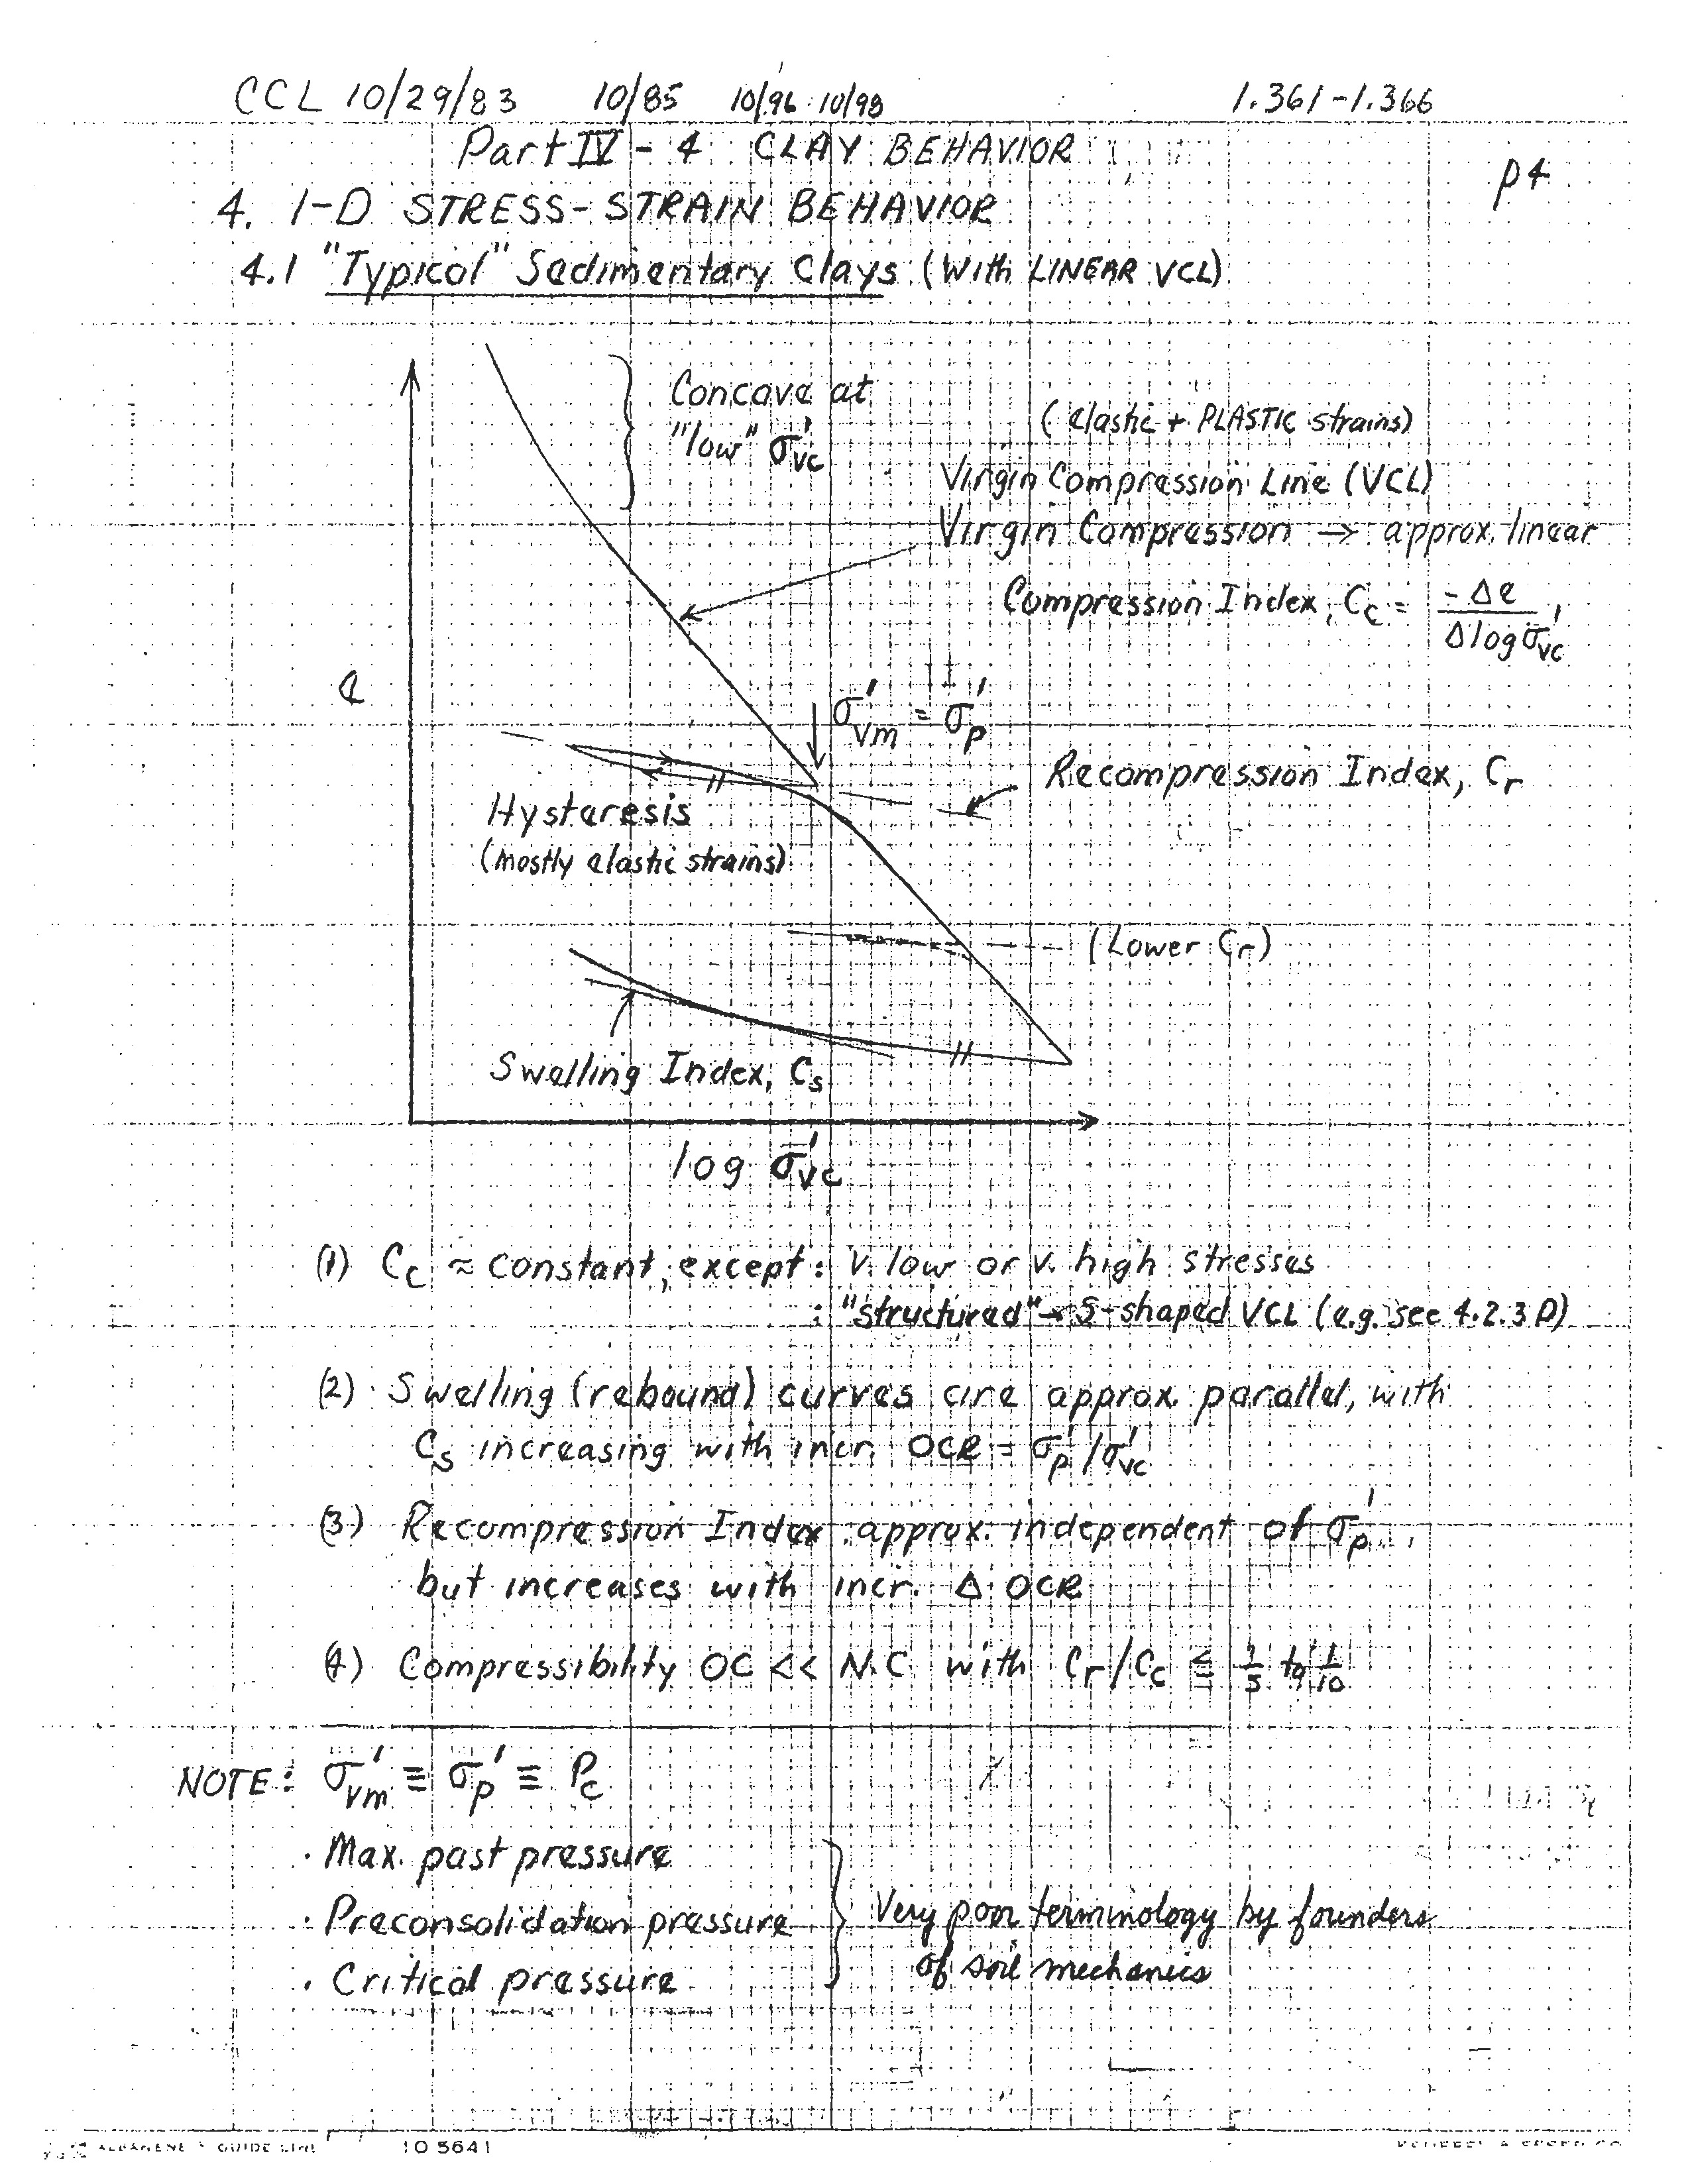 CCL 10/29/83 10/85 10/96 10/98 1.361-1.366
Part IV - 4 CLAY BEHAVIOR
p4
4. 1-D STRESS-STRAIN BEHAVIOR
4.1 "Typical" Sedimentary Clays (With LINEAR VCL)
Concave at
"low" σ'vc
(elastic + PLASTIC strains)
Virgin Compression Line (VCL)
Virgin Compression → approx. linear
Compression Index, Cc = -Δe / Δlog σ'vc
e
σ'vm = σ'p
Recompression Index, Cr
Hysteresis
(mostly elastic strains)
(Lower Cr)
Swelling Index, Cs
log σ'vc
(1) Cc ≈ constant, except: V. low or v. high stresses
: "structured" → S-shaped VCL (e.g. see 4.2.3 D)
(2) Swelling (rebound) curves are approx parallel, with
Cs increasing with incr. OCR = σ'p/σ'vc
(3) Recompression Index approx. independent of σ'p,
but increases with incr. Δ OCR
(4) Compressibility OC << N.C. with Cr/Cc ≤ 1/5 to 1/10
NOTE: σ'vm ≡ σ'p ≡ Pc
· Max. past pressure
· Preconsolidation pressure
· Critical pressure
Very poor terminology by founders
of soil mechanics
ALBANENE GUIDE LINE 10 5641